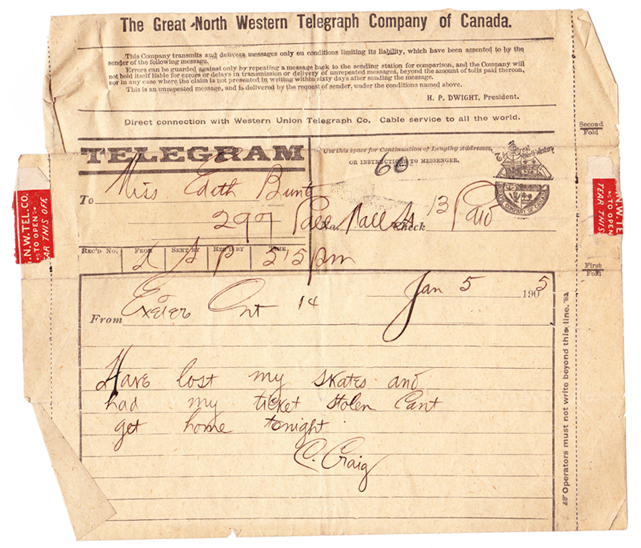 The Great North Western Telegraph Company of Canada.
This Company transmits and delivers messages only on conditions limiting its liability, which have been assented to by the
sender of the following message.
Errors can be guarded against only by repeating a message back to the sending station for comparison, and the Company will
not hold itself liable for errors or delays in transmission or delivery of unrepeated messages, beyond the amount of tolls paid thereon,
nor in any case where the claim is not presented in writing within sixty days after sending the message.
This is an unrepeated message, and is delivered by the request of sender, under the conditions named above.
H. P. DWIGHT, President.
Direct connection with Western Union Telegraph Co. Cable service to all the world.
Second
Fold
TELEGRAM
Use this space for Continuation of Lengthy addresses,
OR INSTRUCTIONS TO MESSENGER.
60
To Miss Edith Bunt
299 Pall Mall St Check 13 Paid
N.W.TEL.CO.
TO OPEN
TEAR THIS OFF
N.W.TEL.CO.
TO OPEN
TEAR THIS
REC'D No. FROM SENT BY REC'D BY TIME
515 pm
First
Fold
From Exeter Ont 14 Jan 5 1905
Have lost my skates and
had my ticket stolen Cant
get home tonight
C. Craig
Operators must not write beyond this line.